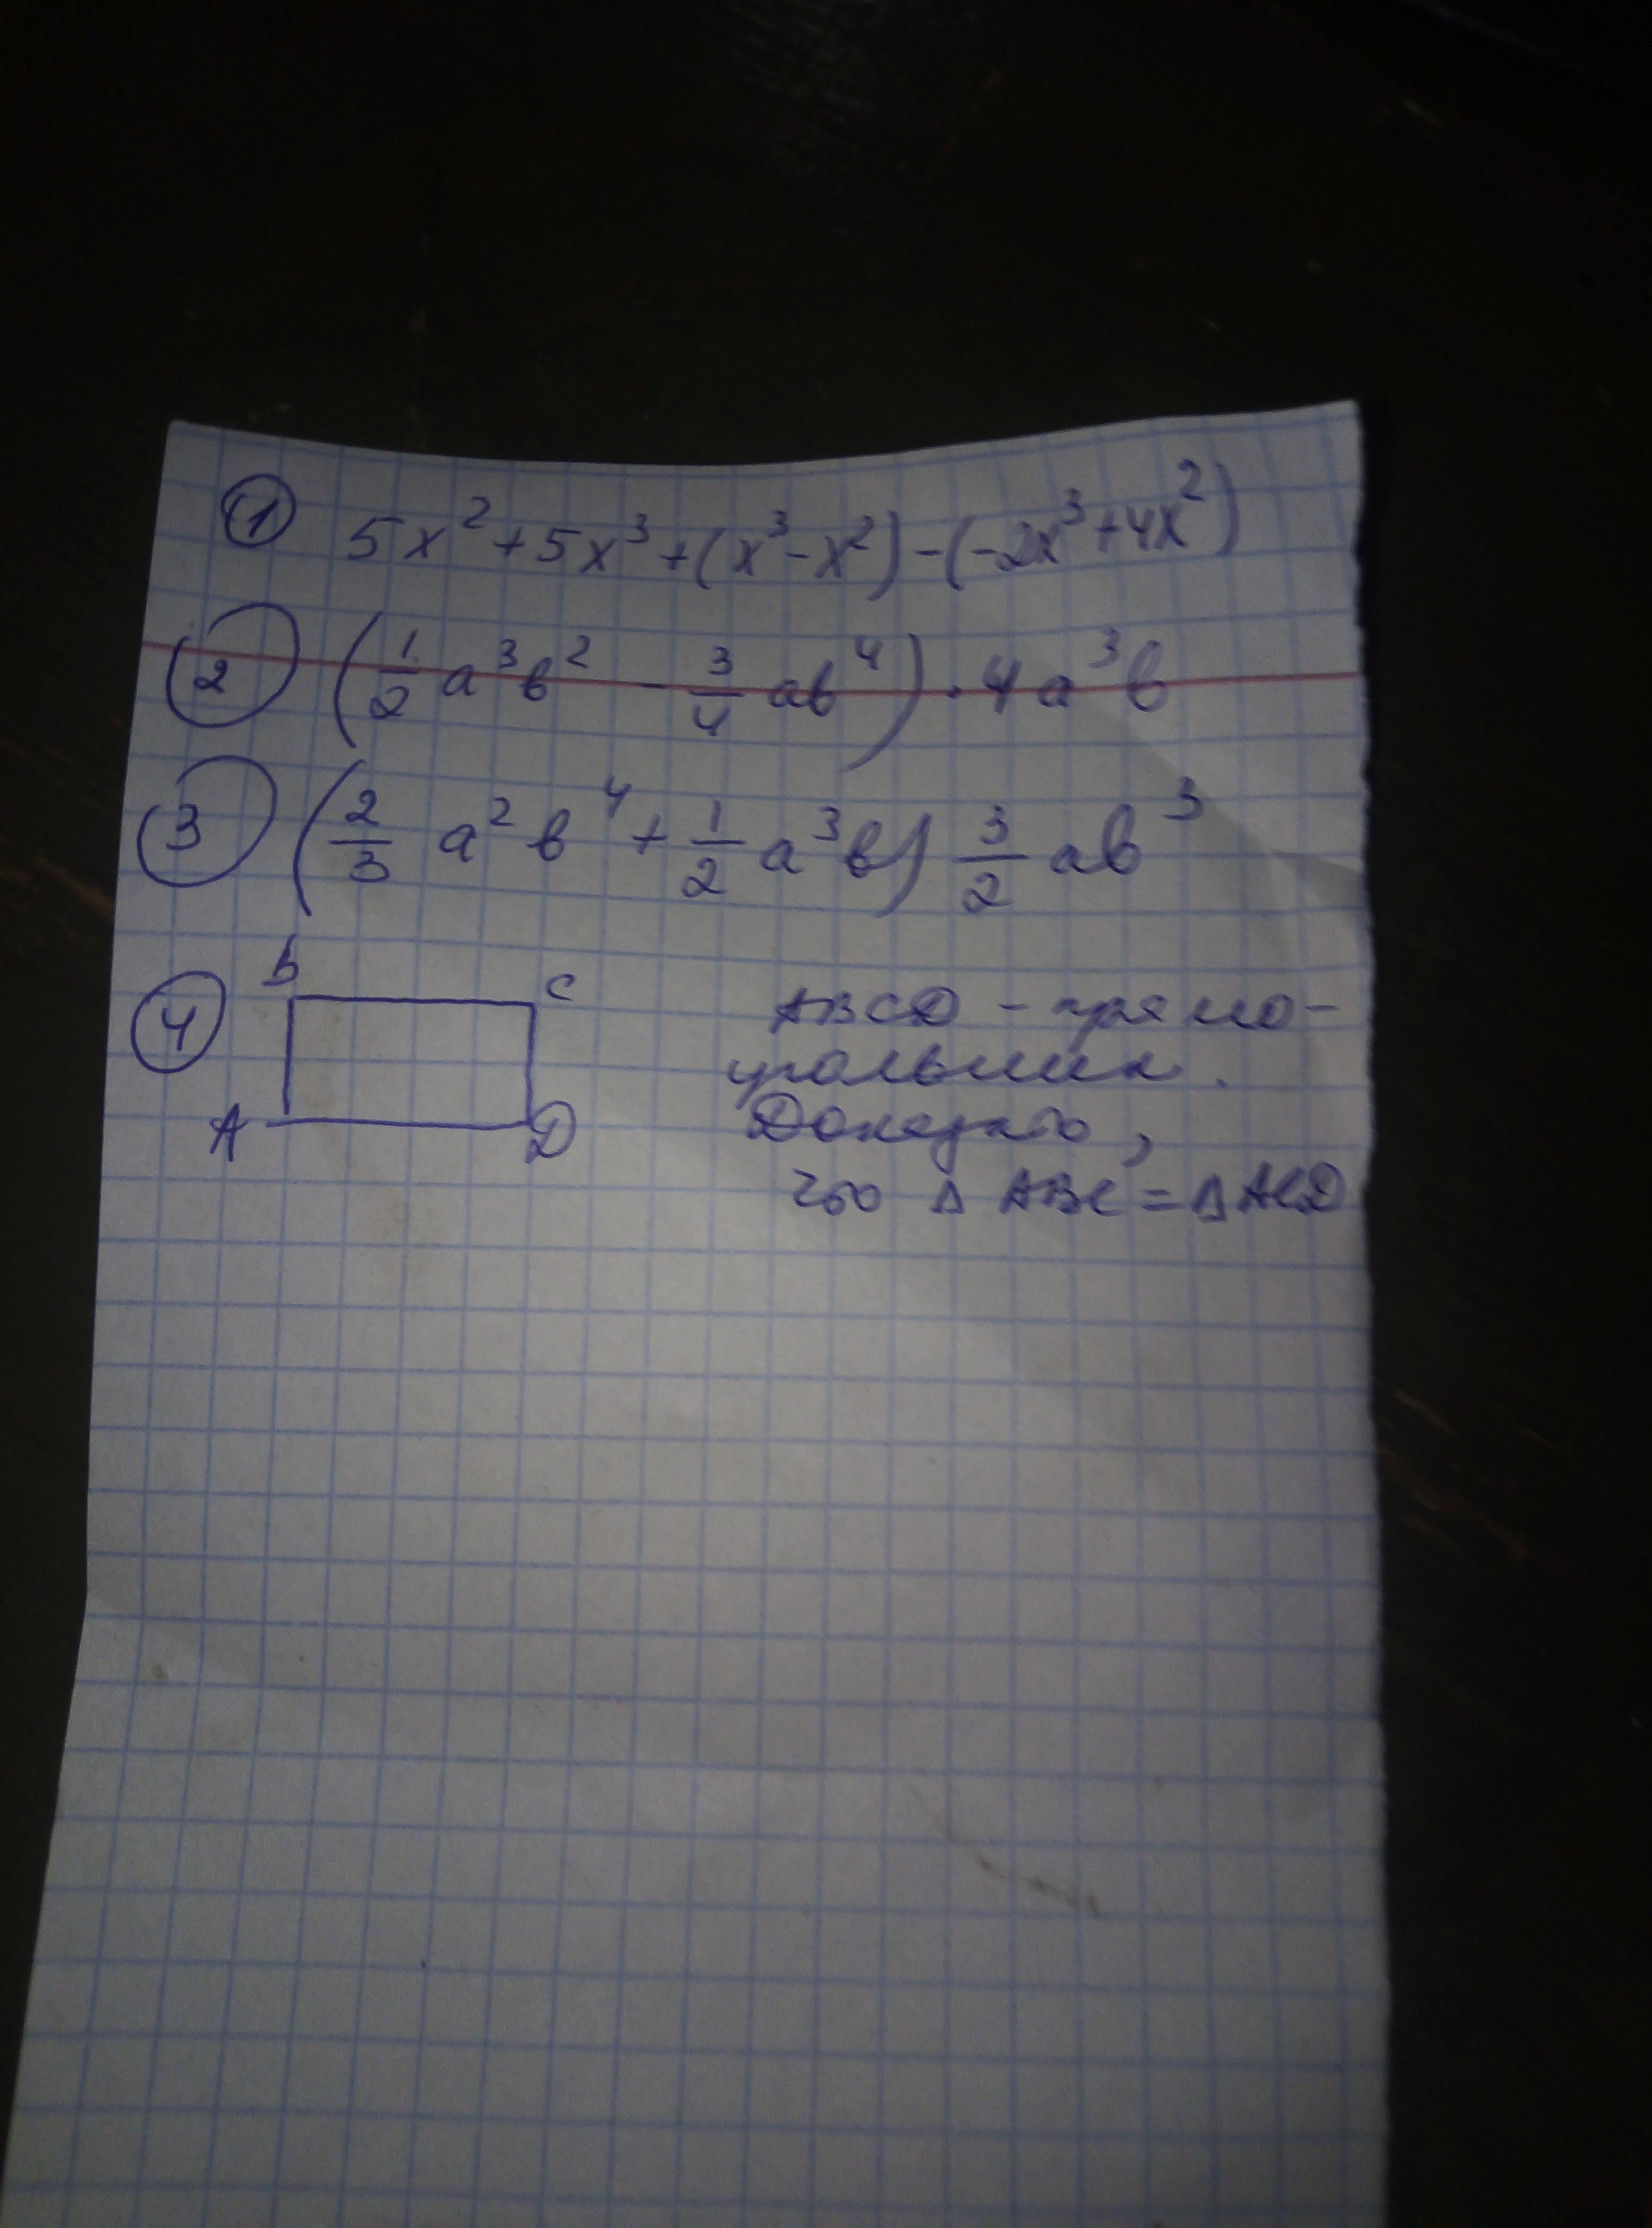 ① 5x² + 5x³ + (x³ - x²) - (-2x³ + 4x²)
② (1/2 a³b² - 3/4 ab⁴) · 4a³b
③ (2/3 a²b⁴ + 1/2 a³b) 3/2 ab³
④ B C A D
ABCD - прямо-
угольник.
Доказать,
что Δ ABC = Δ ACD